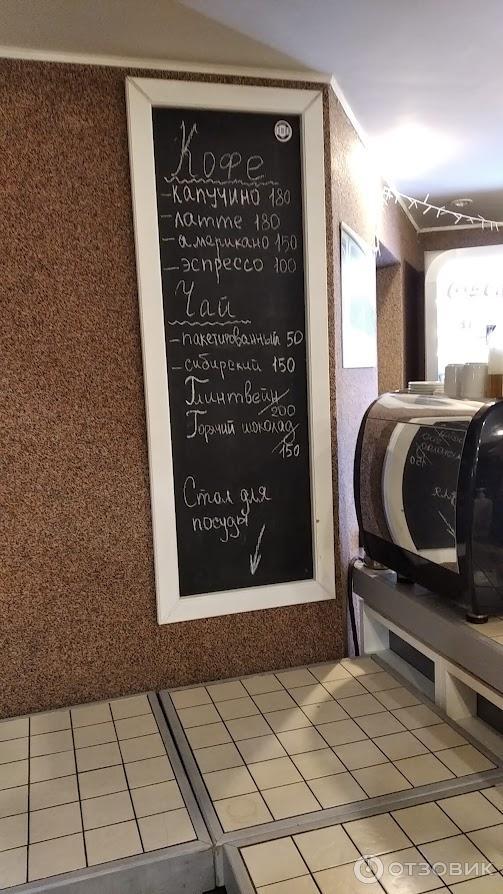 Кофе
- капучино 180
- латте 180
- американо 150
- эспрессо 100
Чай
- пакетированный 50
- сибирский 150
Глинтвейн
200
Горячий шоколад
150
Стол для
посуды
ОТЗОВИК